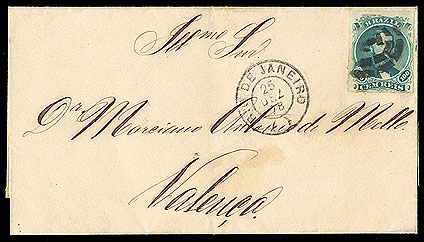 Illmo Snr
BRAZIL
100
CEM REIS
RIO DE JANEIRO
25
DEZ
78
Dr. Marciano Antonio de Mello.
Valença.